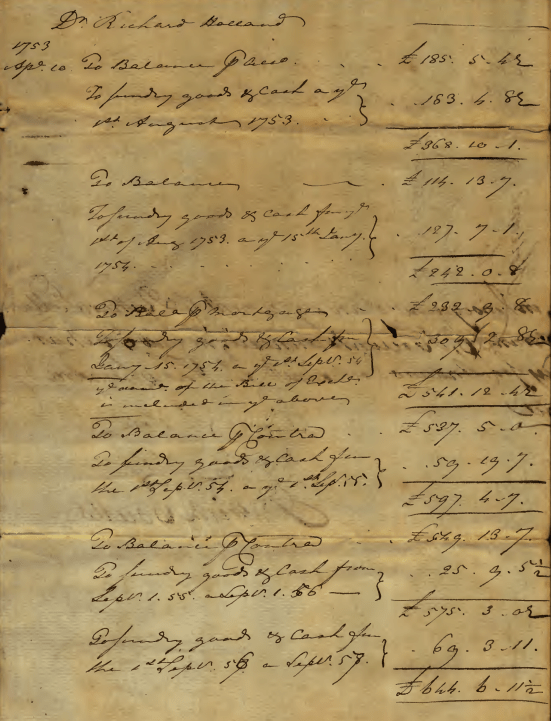 Dr. Richard Holland
1753
Apl. 10 To Balance P Acco. £185. 5. 4½
To sundry goods & Cash a ye
1st August 1753. 183. 4. 8½
£368. 10. 1.
To Balance £114. 13. 7.
To sundry goods & Cash from ye
1st of Aug 1753. a ye 15th Jany. 127. 7. 1.
1754.
£242. 0. 8
To P mortgage £232. 3. 8
To sundry goods & Cash fr 309. 2. 8½
Jany 15. 1754. a ye 1st Sept. 54
ye of the Bill of
is included in ye above £541. 12. 4½
To Balance P Contra £537. 5. 0
To sundry goods & Cash from 59. 19. 7.
the 1st Sept. 54. a ye 1st Sept. 55.
£597. 4. 7.
To Balance P Contra £549. 13. 7.
To sundry goods & Cash from 25. 9. 5½
Sept. 1. 55. a Sept. 1. 56
£575. 3. 0½
To sundry goods & Cash from 69. 3. 11.
the 1st Sept. 56 a Sept. 57.
£644. 6. 11½